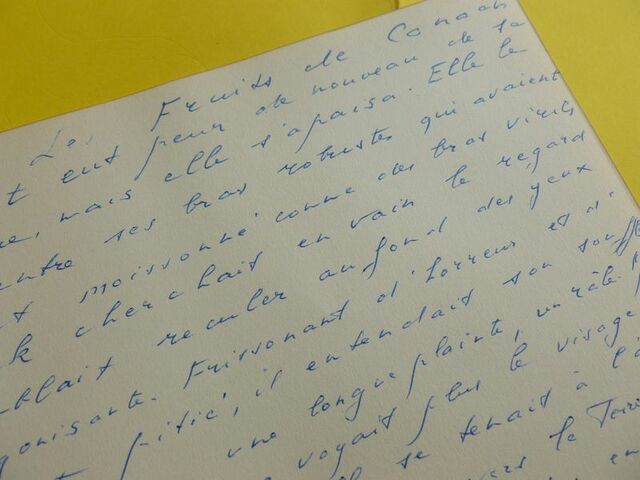 Les Fruits de Canaan
t eut peur de nouveau de sa
mais elle s'apaisa. Elle le
entre ses bras robustes qui avaient
t moissonné comme des bras virils
k cherchait en vain le regard
blait reculer au fond des yeux
gonisante. Frissonant d'horreur et d'
t pitié, il entendait son souffle
une longue plainte, un râle
voyait plus le visage
se tenait à l'a
vers le
en